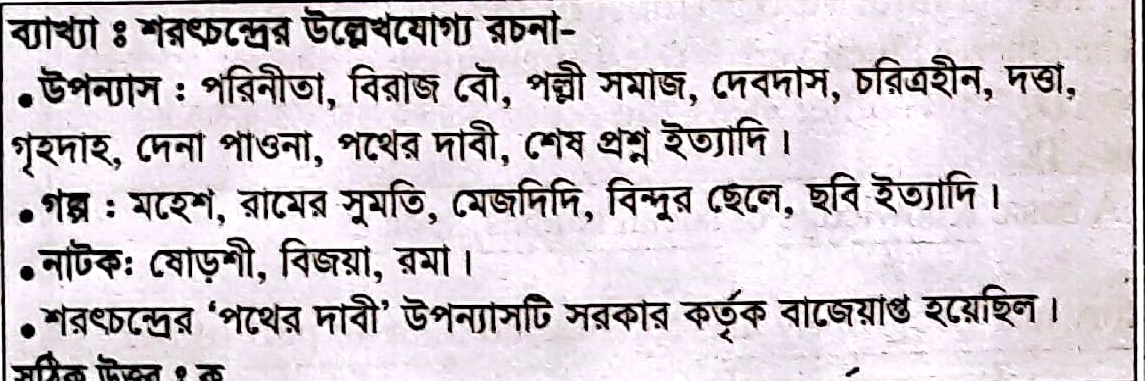 ব্যাখ্যা ঃ শরৎচন্দ্রের উল্লেখযোগ্য রচনা-
• উপন্যাস : পরিনীতা, বিরাজ বৌ, পল্লী সমাজ, দেবদাস, চরিত্রহীন, দত্তা,
গৃহদাহ, দেনা পাওনা, পথের দাবী, শেষ প্রশ্ন ইত্যাদি।
• গল্প : মহেশ, রামের সুমতি, মেজদিদি, বিন্দুর ছেলে, ছবি ইত্যাদি।
• নাটক: ষোড়শী, বিজয়া, রমা।
• শরৎচন্দ্রের ‘পথের দাবী’ উপন্যাসটি সরকার কর্তৃক বাজেয়াপ্ত হয়েছিল।
সঠিক উত্তর ঃ ক